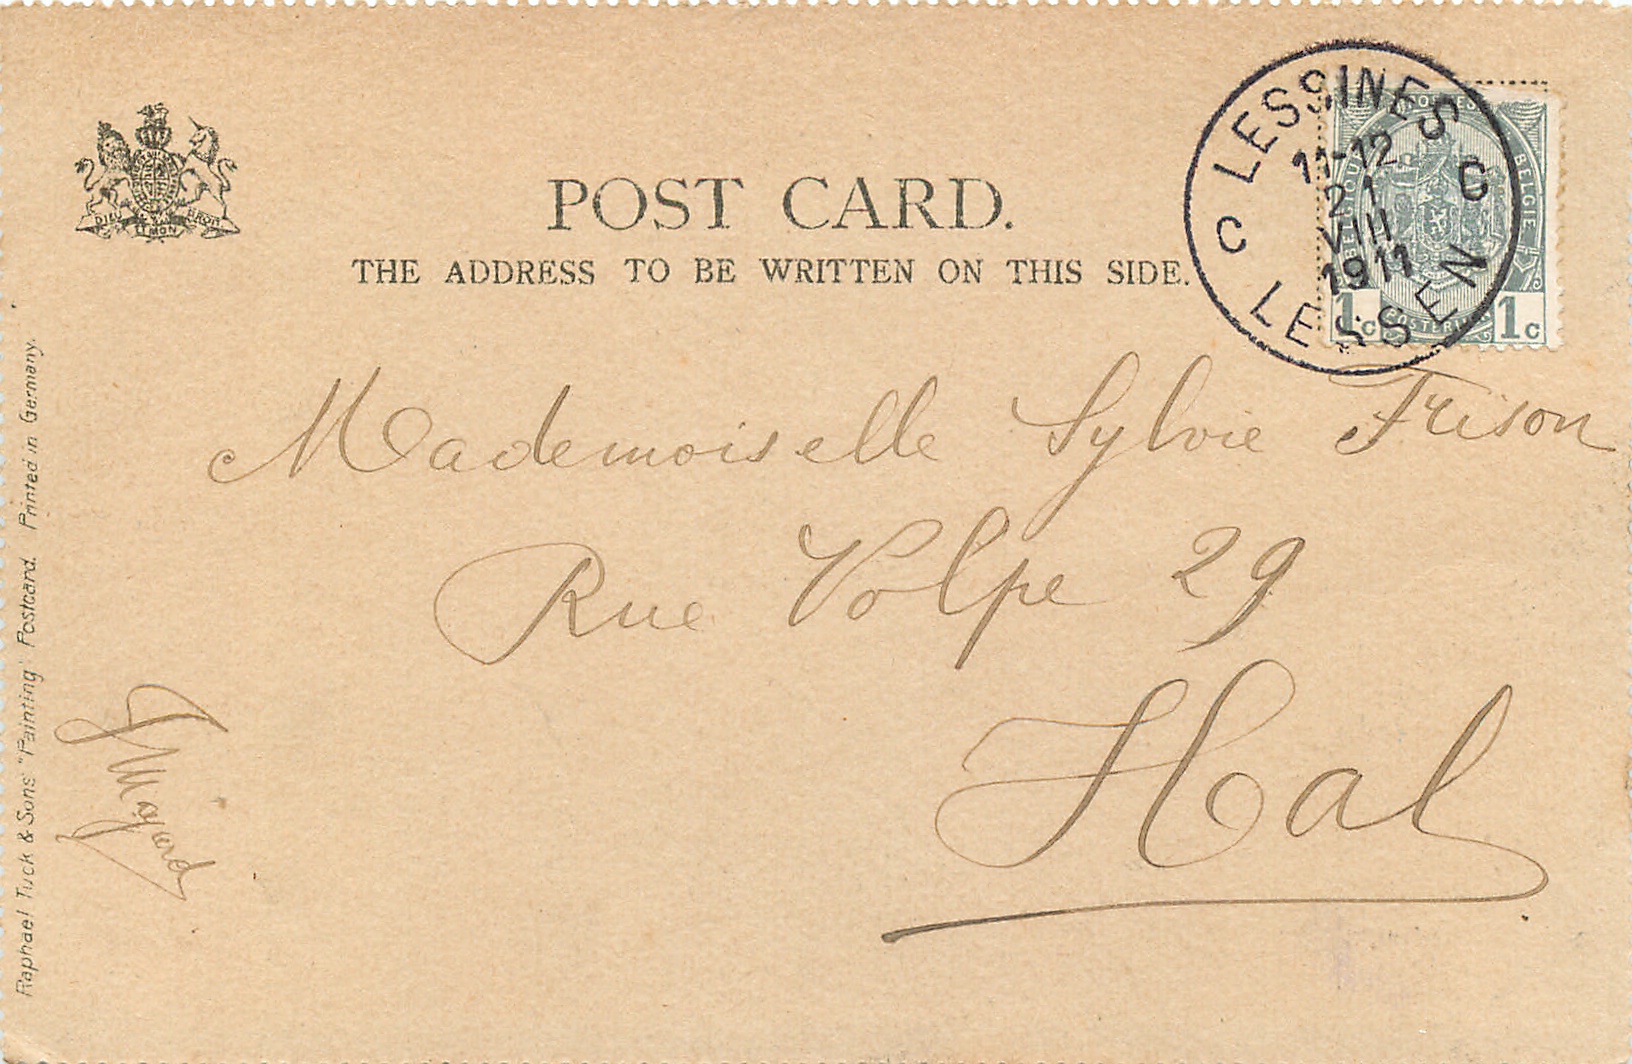 POST CARD.
THE ADDRESS TO BE WRITTEN ON THIS SIDE.
DIEU ET MON DROIT
LESSINES
11-12
21
VIII
1911
C C
LESSEN
POSTES
BELGIQUE
BELGIE
POSTERIJEN
1c 1c
Mademoiselle Sylvie Frison
Rue Volpe 29
Hal
Raphael Tuck & Sons' "Painting" Postcard. Printed in Germany.